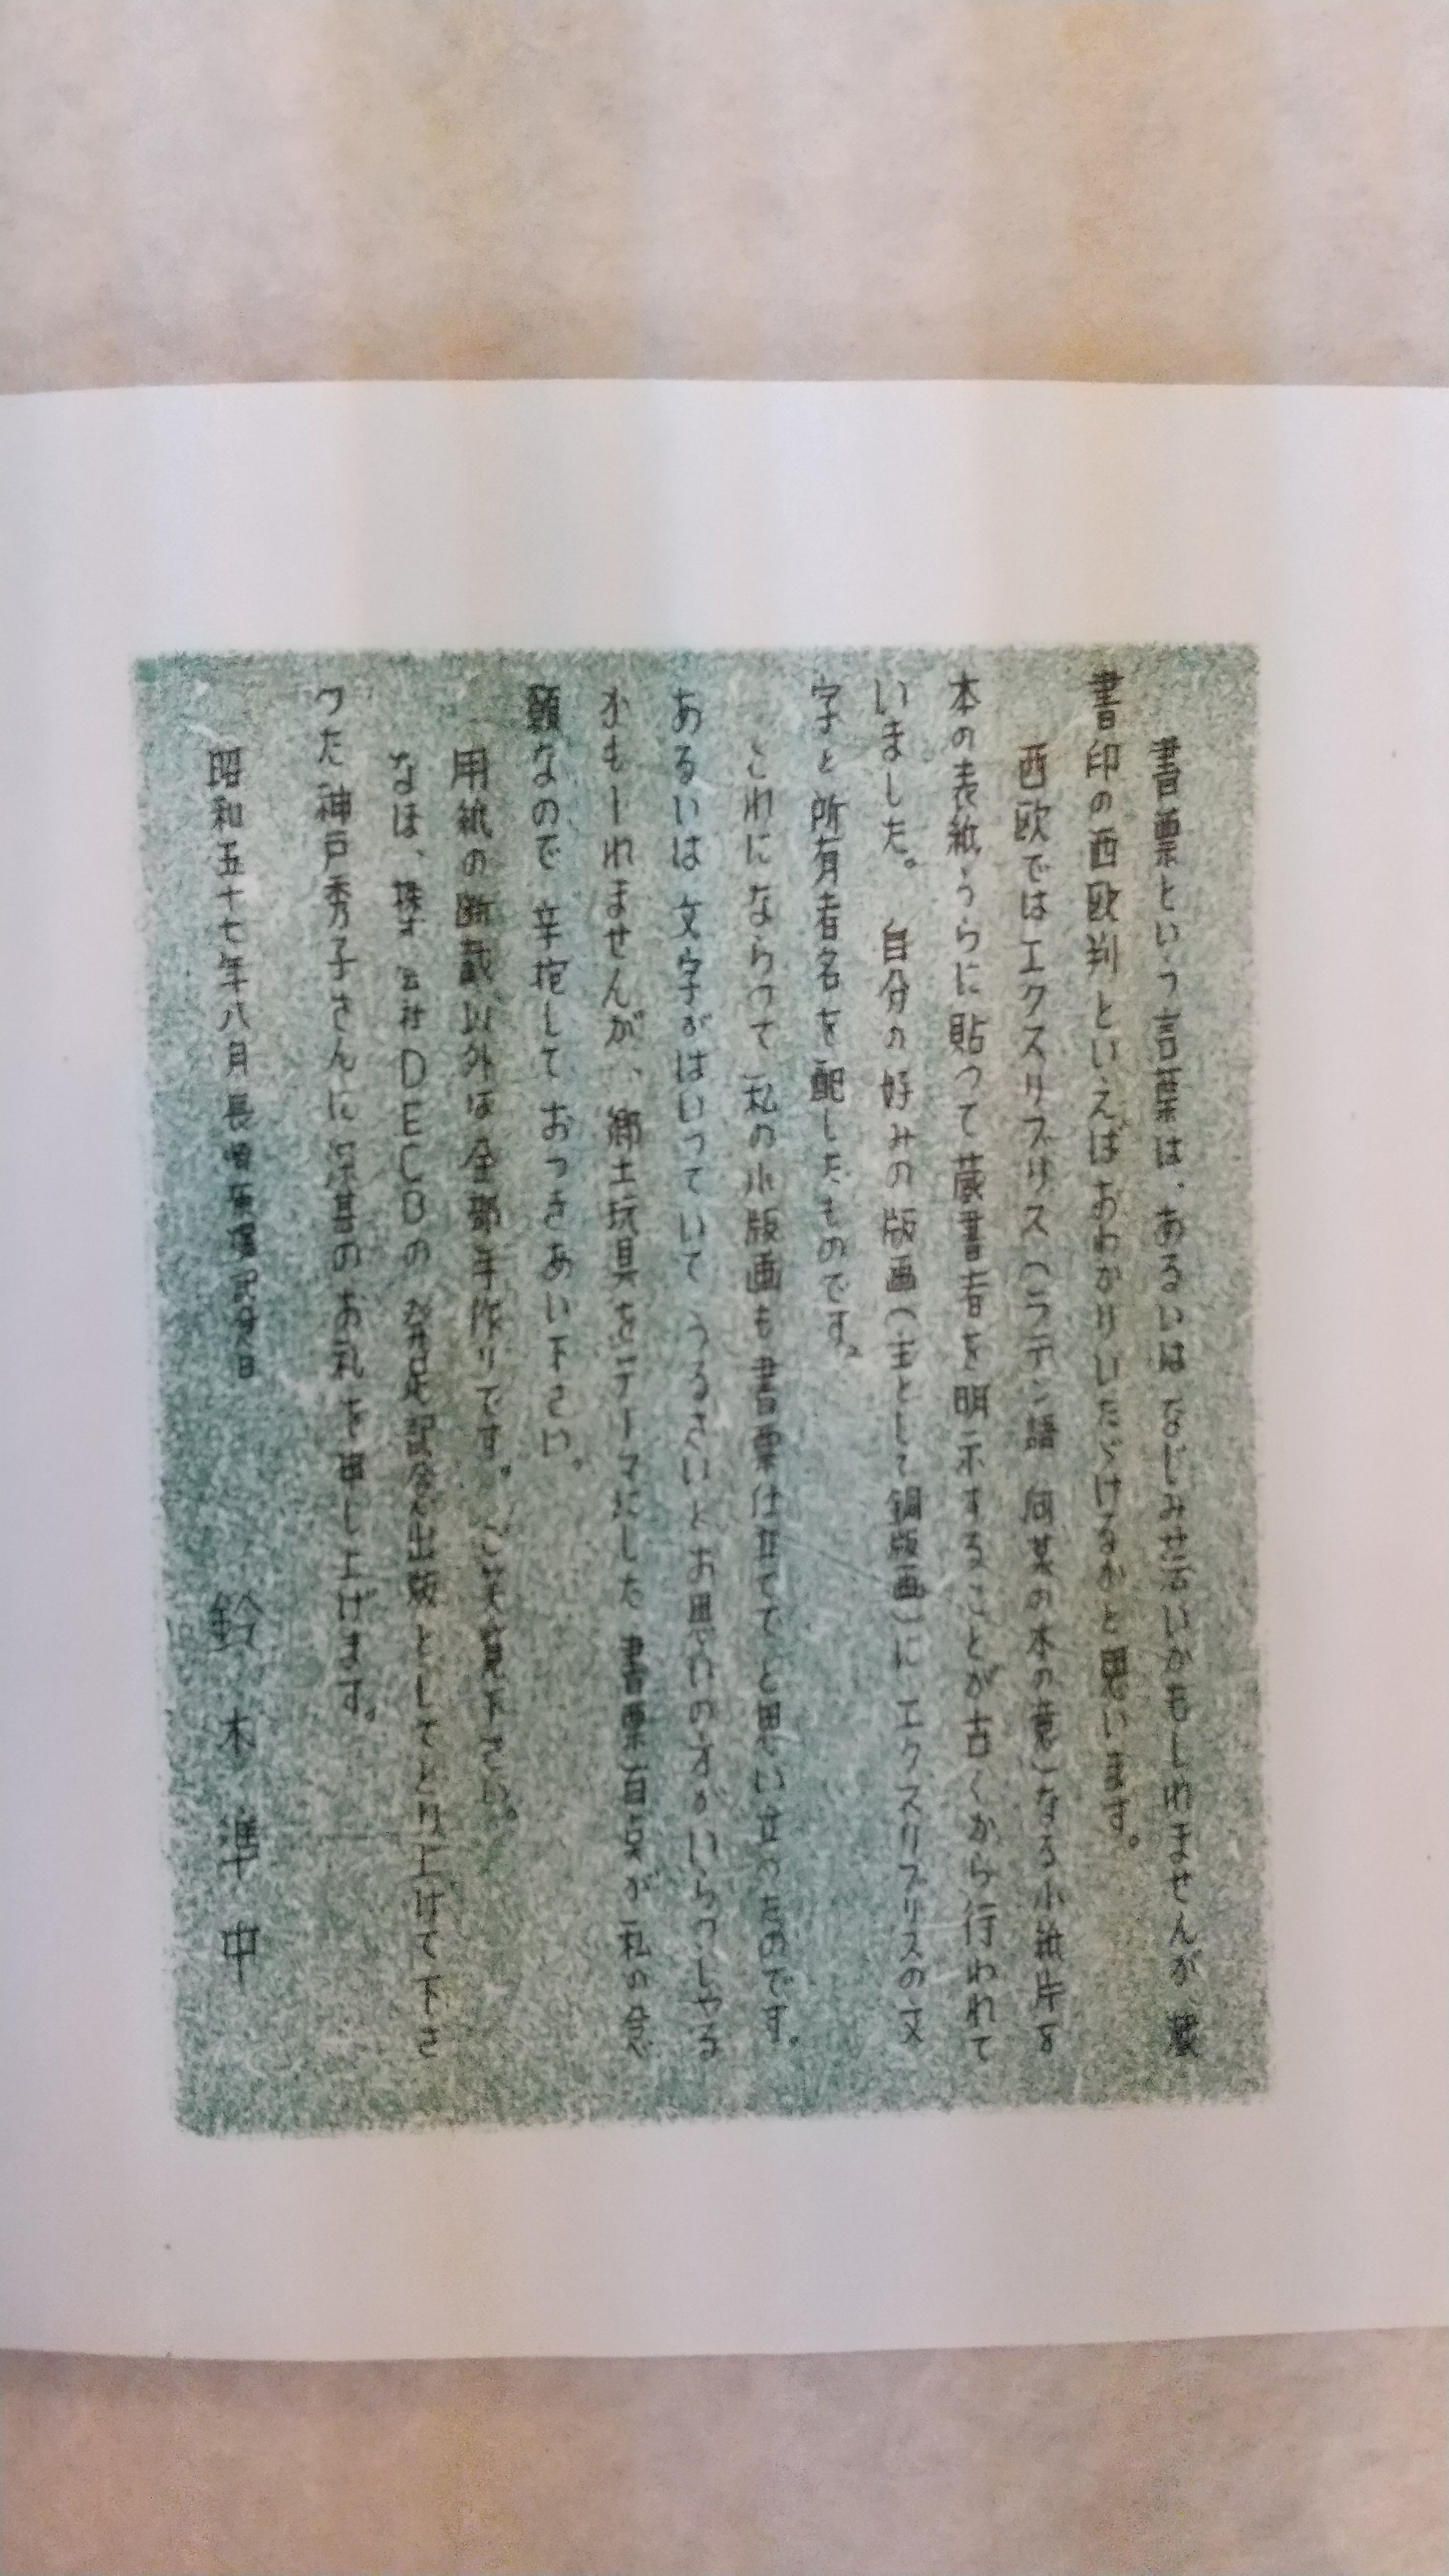 書票といつ言葉は、あるいは なじみせ活いかもしれませんが、蔵
書印の西欧判といえばおわかりいたゞけるかと思います。
西欧ではエクスリブリス（ラテン語 何某の本の意）なる小紙片を
本の表紙うらに貼って蔵書者を明示することが古くから行われて
いました。 自分の好みの版画（主として銅版画）にエクスリブリスの文
字と所有者名を配したものです。
これにならって私の小版画も書票仕立てでと思い立ったのです。
あるいは文字がはいっていて うるさいとお思いの方がいらっしやる
かもしれませんが、郷土玩具をテーマにした書票百点が私の念
願なので 辛抱して おつきあい下さい。
用紙の断裁以外は全部手作りです。ご笑覧下さい。
なほ、株 会社DECBの 発足記念出版としてとり上げて下さ
つた神戸秀子さんに深甚のお礼を申し上げます。
昭和五十七年八月長崎原爆記念日 鈴木準中